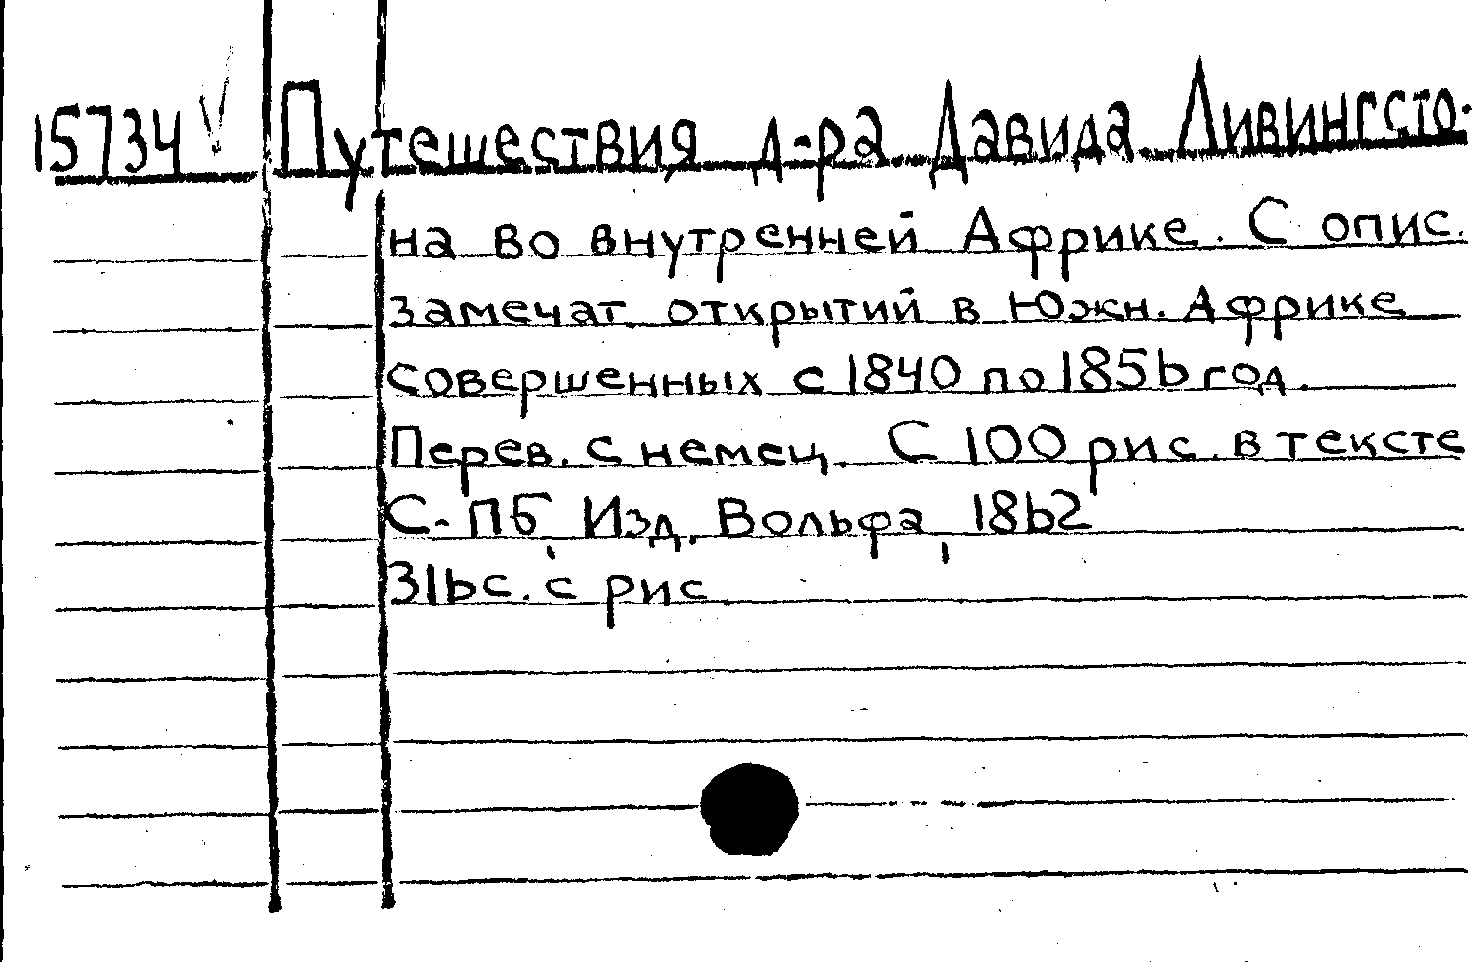 15734 Путешествия д-ра Давида Ливингсто-
на во внутренней Африке. С опис.
замечат открытий в Южн. Африке
совершенных с 1840 по 1856 год.
Перев. с немец. С 100 рис. в тексте
С-Пб, Изд. Вольфа, 1862
316 с. с рис